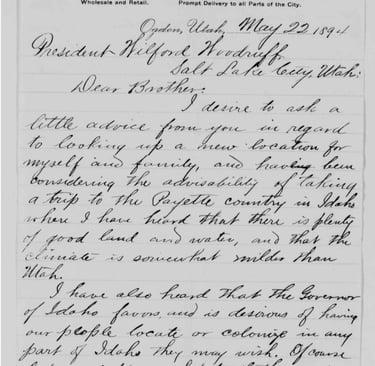 Wholesale and Retail. Prompt Delivery to all Parts of the City.
Ogden, Utah, May 22 1894
President Wilford Woodruff,
Salt Lake City, Utah:
Dear Brother:
I desire to ask a
little advice from you in regard
to looking up a new location for
myself and family, and having been
considering the advisability of taking
a trip to the Payette country in Idaho
where I have heard that there is plenty
of good land and water, and that the
climate is somewhat milder than
Utah.
I have also heard that the Governor
of Idaho favors, and is desirous of having
our people locate or colonize in any
part of Idaho they may wish. Of course